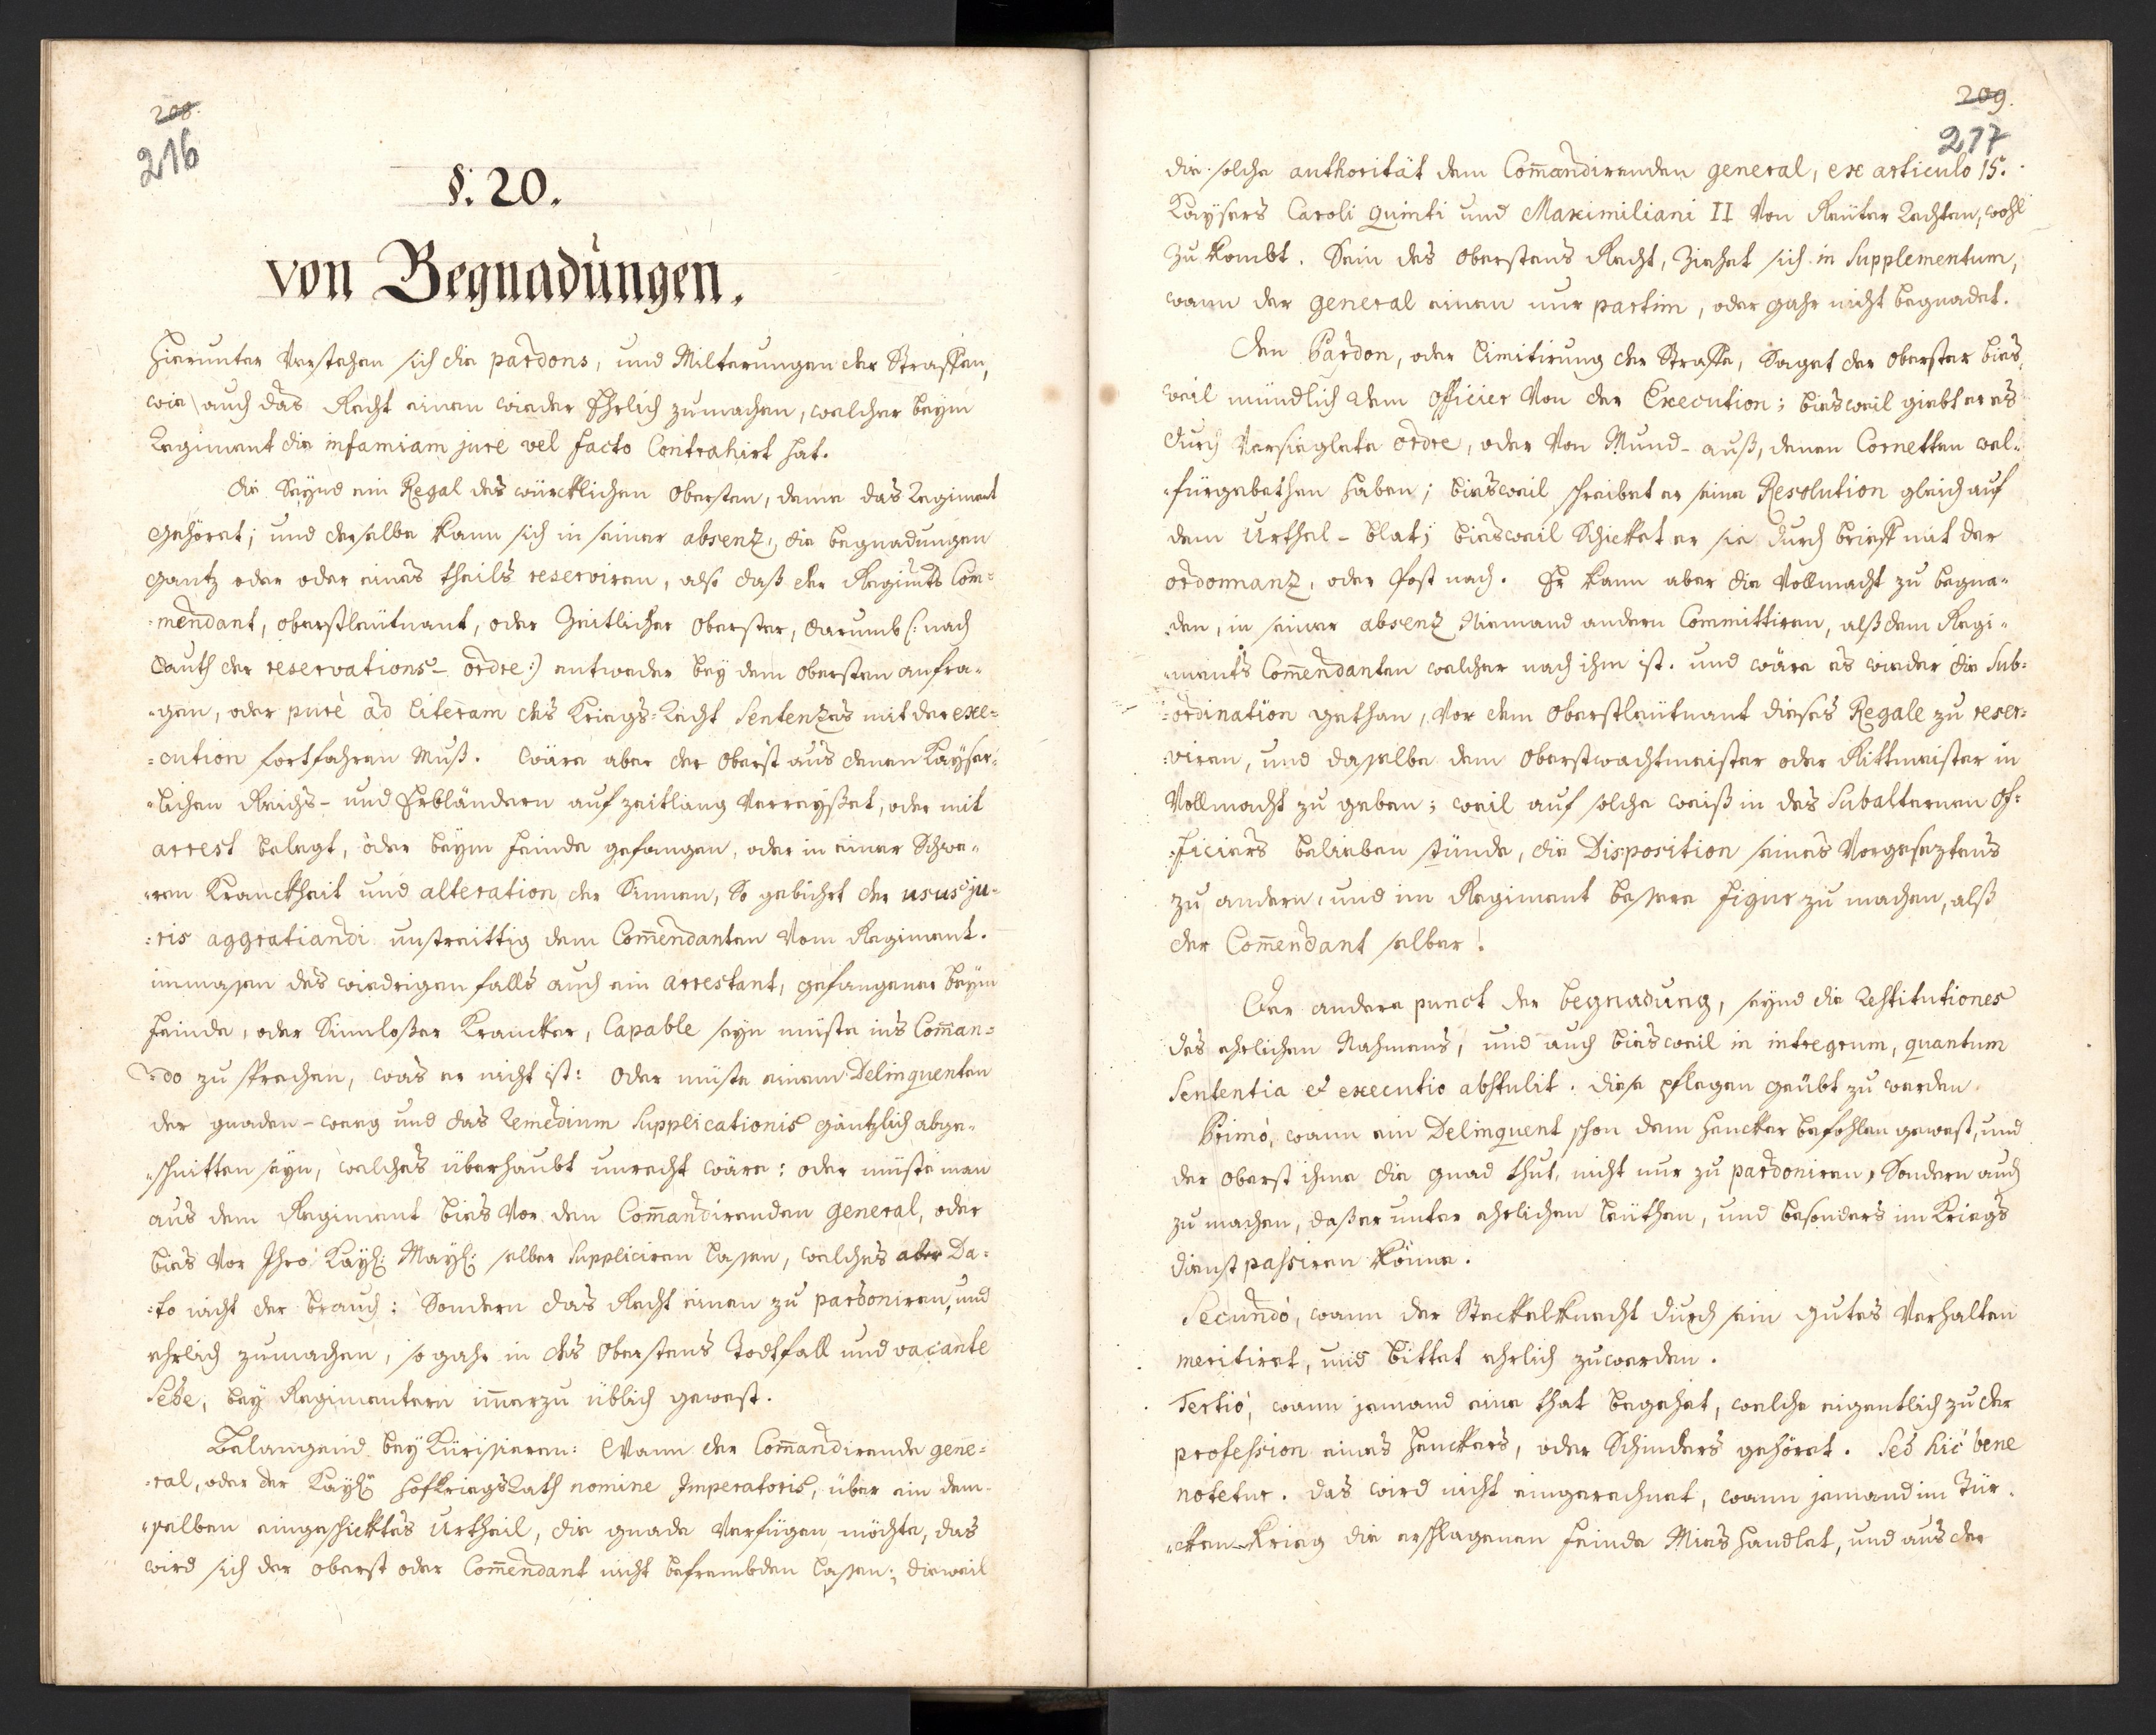 208.
216
§. 20.
von Begnadüngen.
Hierunter Verstehen sich die pardons, und Milterungen der Straffen,
wie auch das Recht einen wieder Ehrlich zumachen, welcher beym
Regiment die infamiam jure vel facto Contrahirt hat.
Die Seynd ein Regal des würcklichen Obersten, deme das Regiment
Gehöret; und derselbe kann sich in seiner absenz, die begnadungen
gantz oder oder eines theils reserviren, also daß der Regiments Com=
=mendant, oberstleütnant, oder Zeitlicher Oberster, darumb (: nach
Lauth der reservations-ordre:) entweder bey dem Obersten anfra=
=gen, oder purè ad literam des Kriegs=Recht Sentenzes mit der exe=
=cution fortfahren Muß. Wäre aber der Oberst aus denen Kayser=
=lichen Reichs- und Erbländern auf zeitlang Verreyßet, oder mit
arrest belegt, oder beym feinde gefangen, oder in einer Schwe=
=ren Kranckheit und alteration der Sinnen, So gebührt der usus ju=
=ris aggratiandi unstreittig dem Com̄endanten Vom Regiment.
immassen des wiedrigen falls auch ein arrestant, gefangener beym
feinde, oder Sinnloßer Krancker, Capable seyn müste ins Com̄an=
=do zu sprechen, was er nicht ist: Oder müste einem Delinquenten
der gnaden-weeg und das Remedium Supplicationis gäntzlich abge=
=schnitten seyn, welches überhaubt unrecht wäre: oder müste man
aus dem Regiment bies Vor den Com̄andirenden General, oder
bies Vor Ihro Kayl: Mayl: selber Suppliciren lassen, welches aber Da=
=to nicht der brauch: Sondern das Recht einen zu pardoniren, und
ehrlich zumachen, so gahr in des Oberstens Todtfall und vacante
Sede, bey Regimentern im̄erzu üblich gewest.
Belangend bey Kürissieren: Wann der Com̄andirende gene=
=ral, oder der Kayl: HofkriegsRath nomine Imperatoris, über ein dem=
=selben eingeschicktes Urtheil, die gnade Verfügen möchte, das
wird sich der Oberst oder Com̄endant nicht befrembden lassen; dieweil
209.
217
die solche authorität dem Com̄andirenden general, ex articulo 15.
Kaysers Caroli Quinti und Maximiliani II Von Reüter Rechten, wohl
zu kombt. Sein des Oberstens Recht, Ziehet sich in Supplementum,
wann der general einen nur partim, oder gahr nicht begnadet.
Den Pardon, oder limitirung der Straffe, Saget der Oberster bies=
weil mündlich dem Officier Von der Execution; biesweil giebt er es
durch Versieglete ordre, oder Von Mund-auß, denen Cornetten wel=
=fürgebethen haben; biesweil schreibet er seine Resolution gleich auf
dem Urthel-blat; biesweil Schicket er sie durch brieff mit der
ordonnanz, oder Post nach. Er kann aber die Vollmacht zu begna=
=den, in seiner absenz Niemand andern Committiren, alß dem Regi=
=ments Com̄endanten welcher nach ihm ist. und wäre es wieder die Sub=
=ordination gethan, Vor dem Oberstleütnant dieses Regale zu reser=
=viren, und dasselbe dem Oberstwachtmeister oder Rittmeister in
Vollmacht zu geben; weil auf solche weiß in des Subalternen Of=
=ficiers belieben stünde, die Disposition seines Vorgeseztens
zu andern, und im Regiment bessere figur zu machen, alß
der Com̄endant selber!
Der andere punct der begnadung, seynd die Restitutiones
des ehrlichen Nahmens, und auch biesweil in integrum, quantum
Sententia et executio abstulit. diese pflegen geübt zu werden.
Primò, wann ein Delinquent schon dem Hencker befohlen gewest, und
der Oberst ihme die gnad thut, nicht nur zu pardoniren, Sondern auch
zu machen, daß er unter ehrlichen leüthen, und besonders im Kriegs
dienst passiren könne.
Secundò, wann der Steckelknecht durch sein gutes Verhalten
meritiret, und bittet ehrlich zuwerden.
Tertiò, wann jemand eine that begehet, welche eigentlich zu der
profession eines Henckers, oder Schinders gehöret. Sed hic bene
notetur. das wird nicht eingerechnet, wann jemand im Tür=
=cken-Krieg die erschlagenen feinde Mieshandlet, und aus der